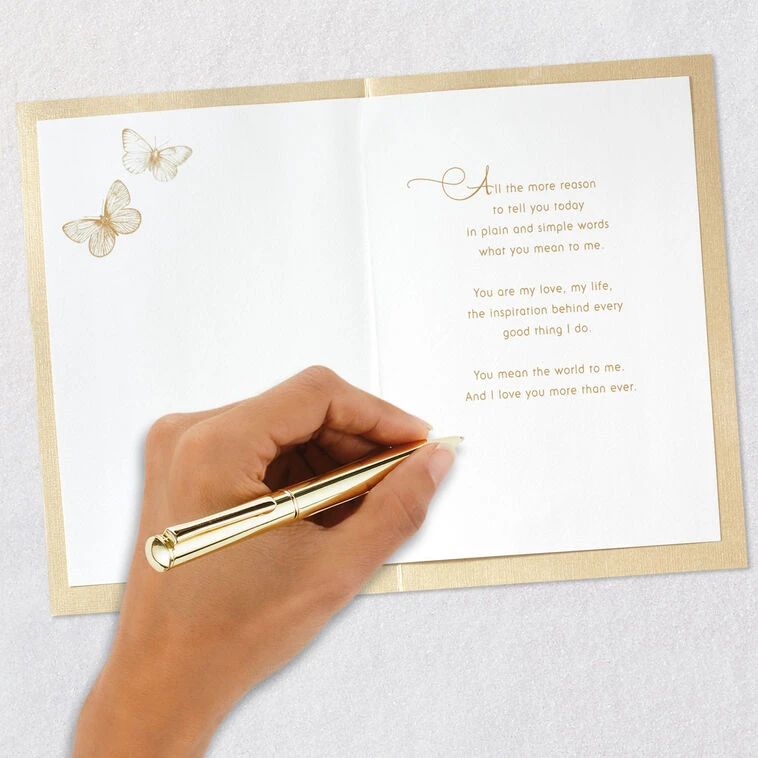 All the more reason
to tell you today
in plain and simple words
what you mean to me.
You are my love, my life,
the inspiration behind every
good thing I do.
You mean the world to me.
And I love you more than ever.